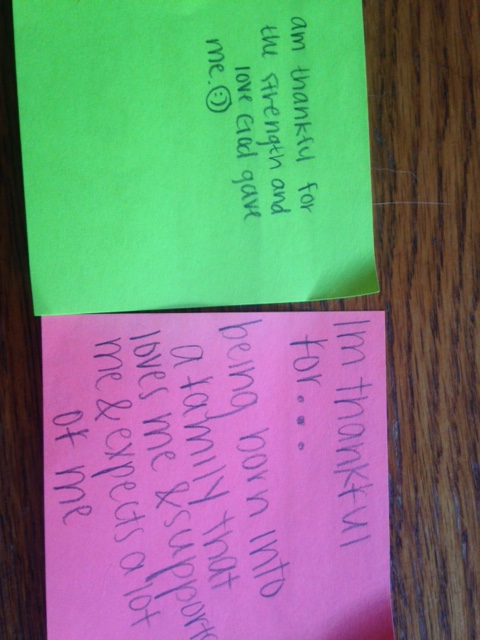 am thankful for
the strength and
love God gave
me. :)
Im thankful
for...
being born into
a family that
loves me & supports
me & expects a lot
of me